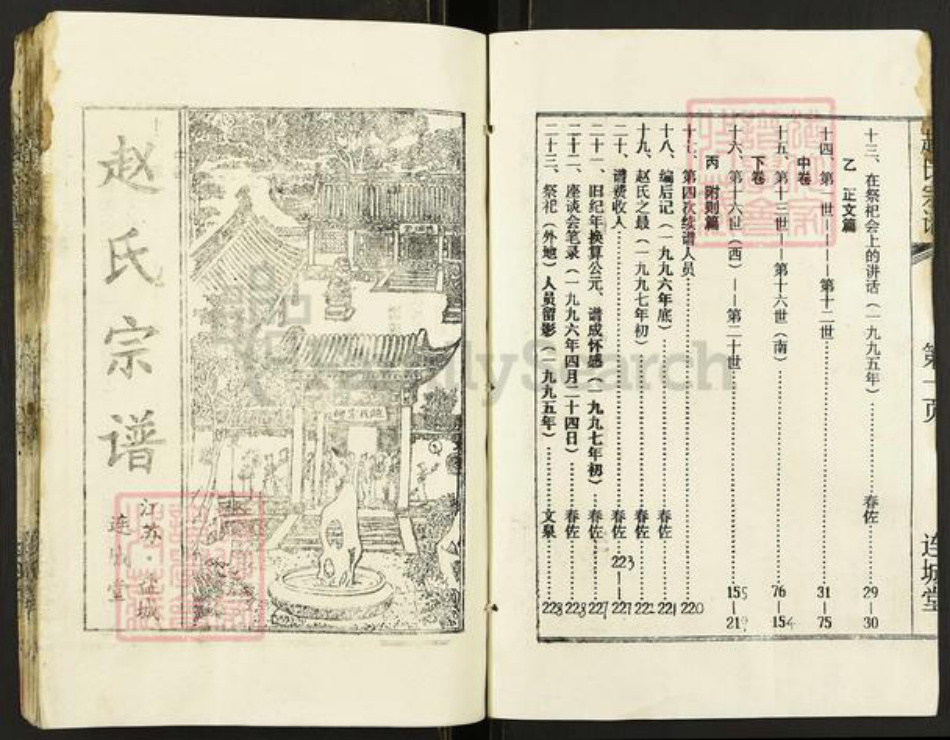 赵氏宗谱
江苏·盐城
连城堂
赵氏宗谱 第一页 连城堂
十三、在祭祀会上的讲话（一九九五年）……春佐……29—30
乙 正文篇
十四、第一世——第十二世……31—75
中卷
十五、第十三世——第十六世（南）……76—154
下卷
十六、第十六世（西）——第二十世……155—219
丙 附则篇
十七、第四次续谱人员……220
十八、编后记（一九九六年底）……春佐……221
十九、赵氏之最（一九九七年初）……春佐……222
二十、谱费收人……春佐……223—227
二十一、旧纪年换算公元、谱成怀感（一九九七年初）……春佐……227
二十二、座谈会笔录（一九九六年四月二十四日）……春佐……228
二十三、祭祀（外地）人员留影（一九九五年）……文泉……228
FamilySearch